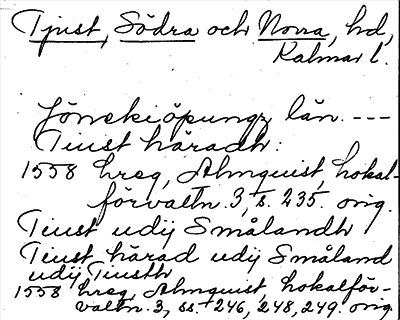 Tjust, Södra och Norra, hd,
Kalmar l.
Jönskiöpungz län. ---
Tiust häradh:
1558 hreg, Almquist, Lokal-
förvaltn. 3, s. 235. orig.
Tiust udij Smålandh
Tiust härad udij Småland
udij Tiusth
1558 hreg, Almquist, Lokalför-
valtn. 3, ss. 246, 248, 249. orig.